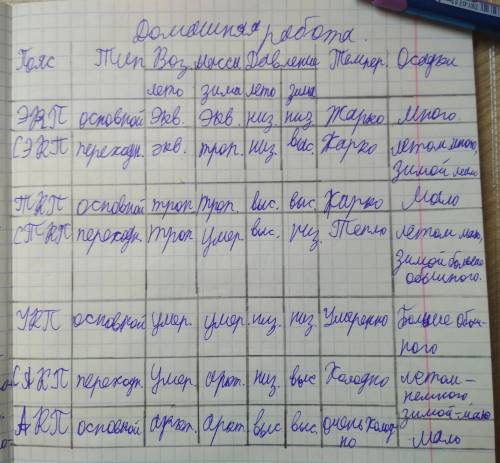 Домашняя работа.
Пояс Тип Воз. массы Давление Темпер. Осадки
лето зима лето зима
ЭКП основной Экв. Экв. низ. низ. Жарко Много
СЭКП переходн. экв. троп. низ. выс. Жарко летом много,
зимой мало
ТКП основной троп. троп. выс. выс. Жарко Мало
СТКП переходн. троп. умер. выс. низ. Тепло летом мало,
зимой больше
обычного.
УКП основной умер. умер. низ. низ. Умеренно Больше обыч-
ного
САКП переходн. умер. аркт. низ. выс. Холодно летом -
немного,
зимой-мало
АКП основной аркт. аркт. выс. выс. очень холод- мало
но